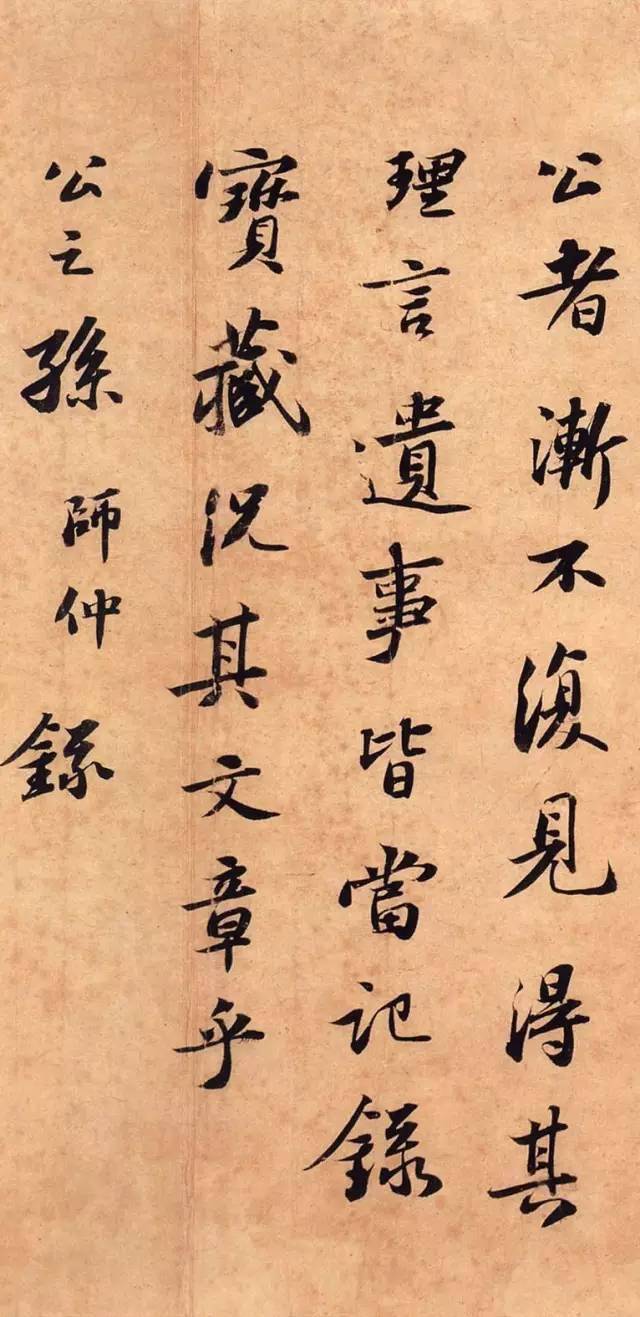 公者漸不復見得其
理言遺事皆當記錄
寳藏況其文章乎
公之孫師仲錄